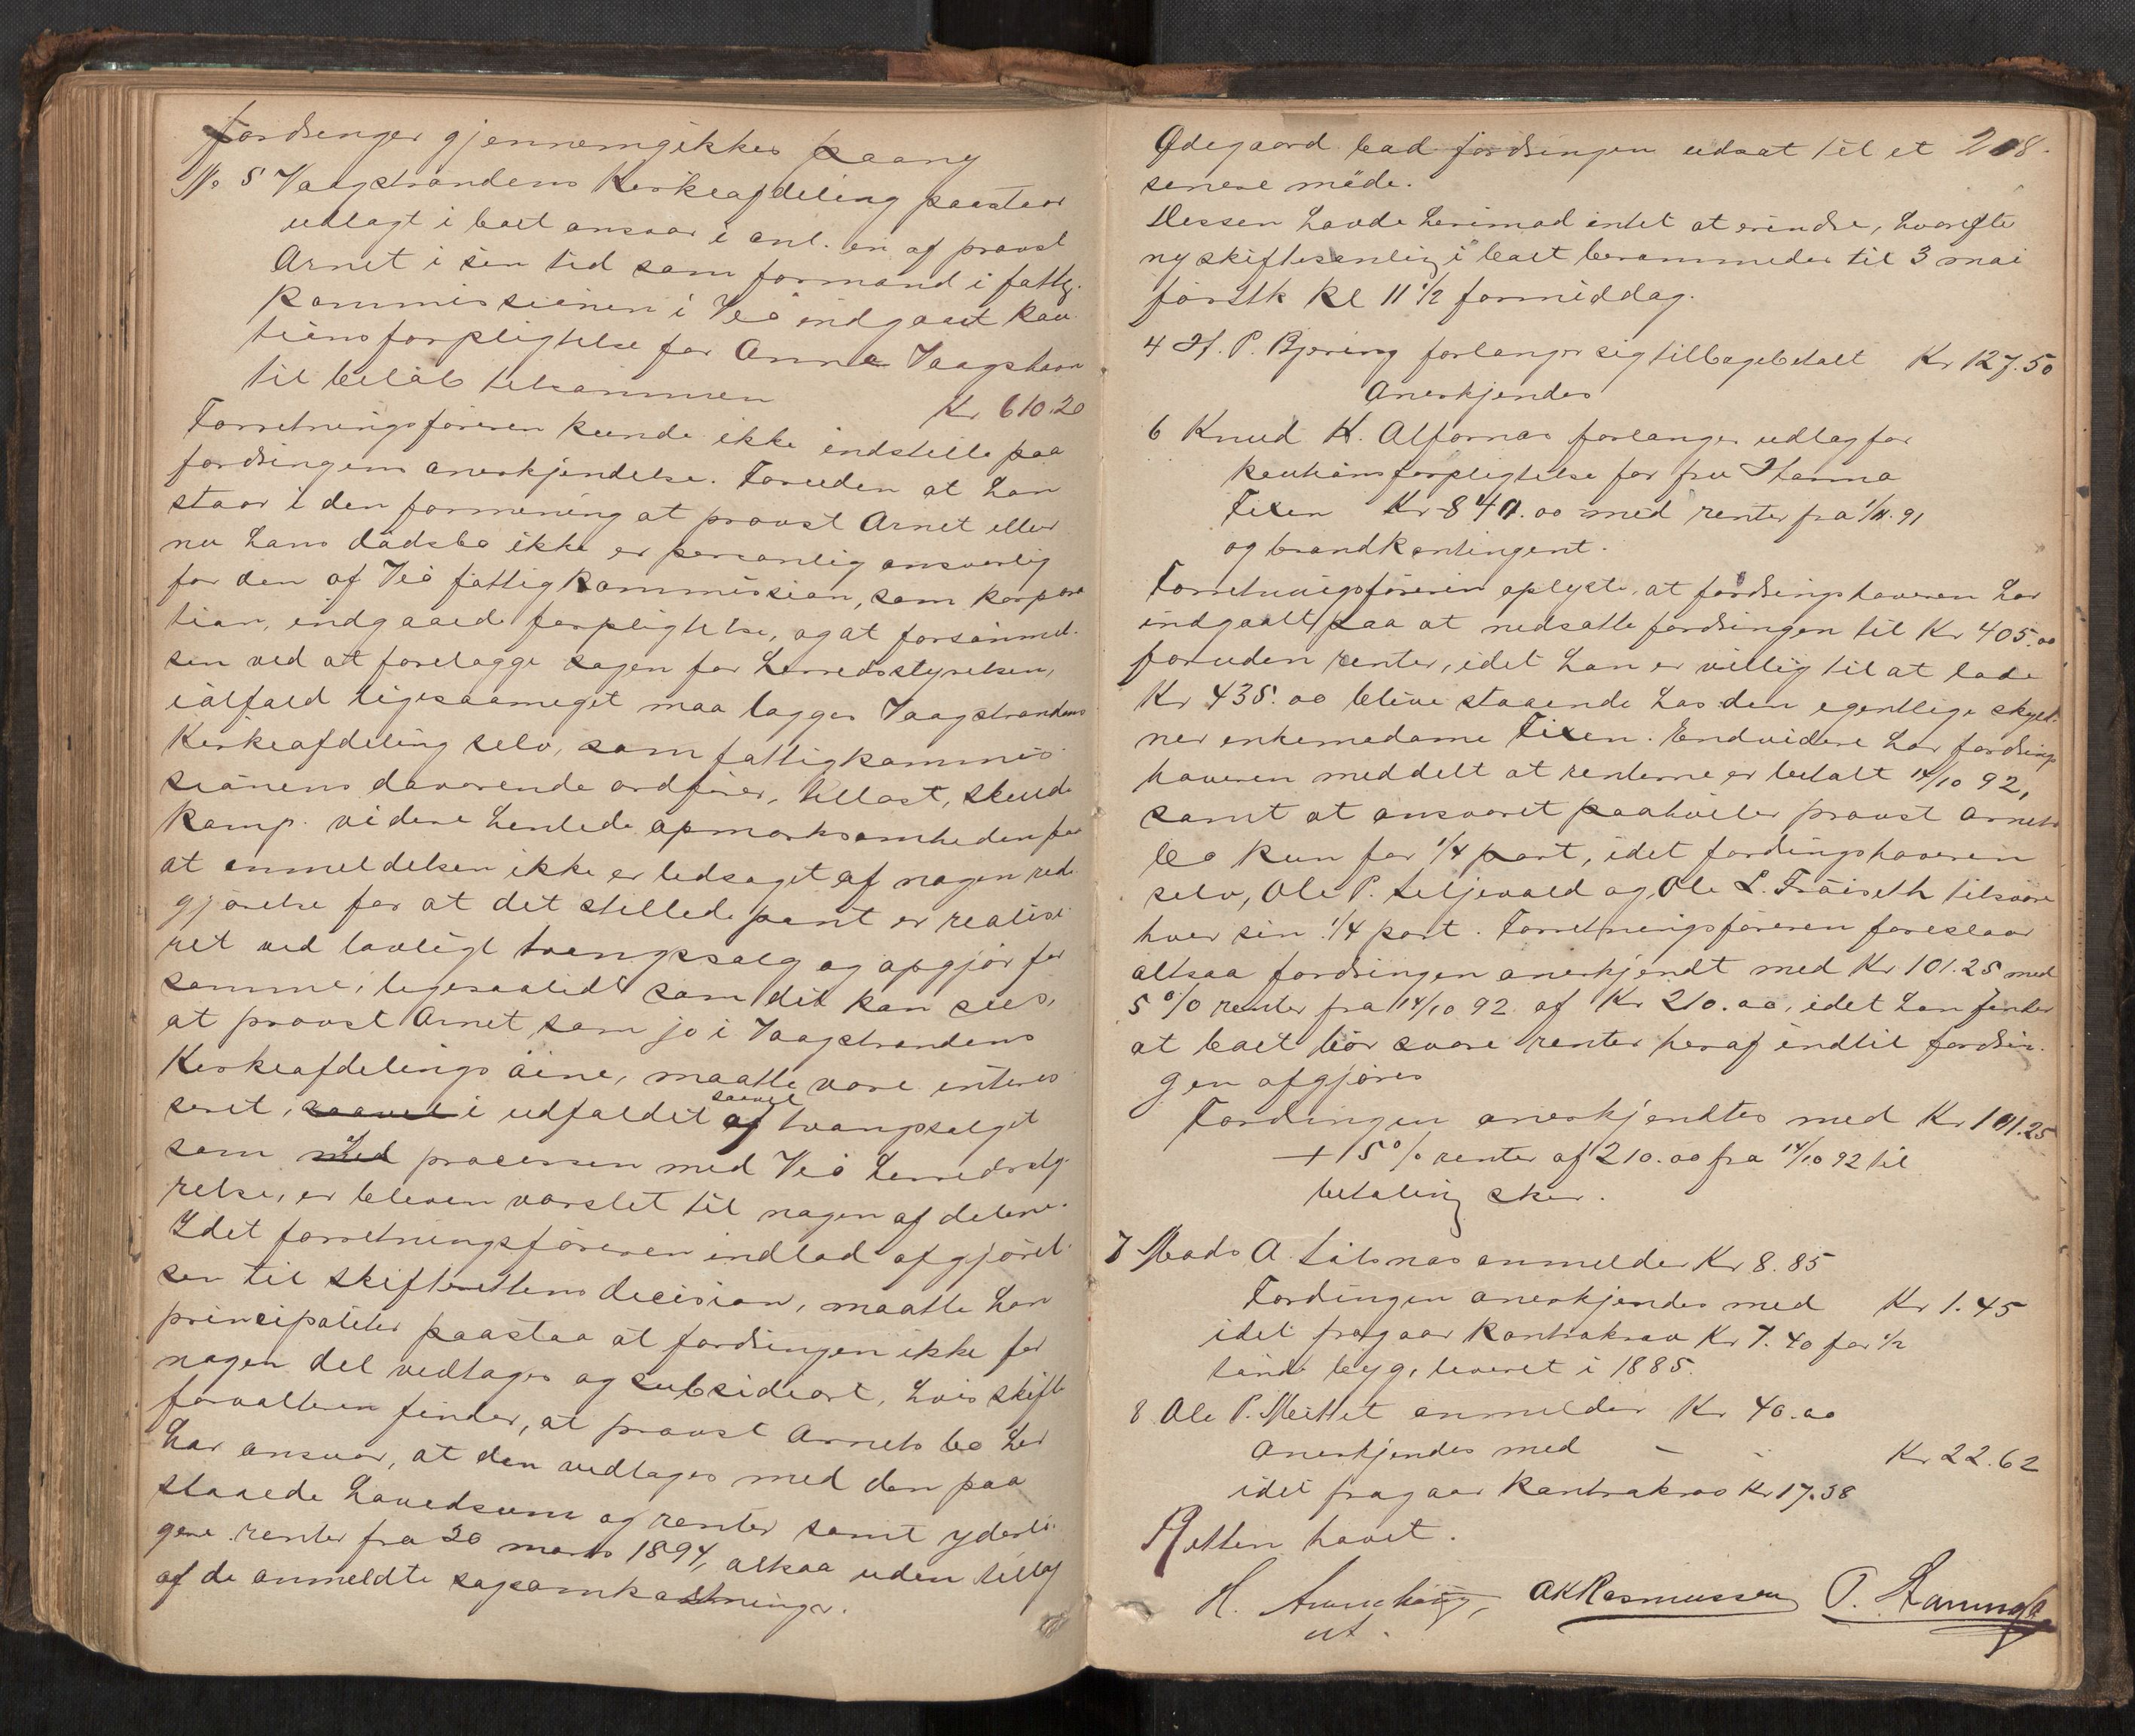 fordringer gjennemgikkes paany
No 5 Vaagstrandens Kirkeafdeling paastaar
udlagt i boet ansvar i anl. en af provst
Arnet i sin tid som formand i fattig-
kommissionen i Veö indgaaet kau-
tionsforpligtelse for Anna Vaagstran
til beløb tilsammen Kr. 610.20
Forretningsföreren kunde ikke indstille paa
fordringens anerkjendelse. Foruden at han
staar i den formening at provst Arnet eller
nu hans dödsbo ikke er personlig ansvarlig
for den af Veö fattigkommission, som korpora
tion, indgaaede forpligtelse, og at forsömmel-
sen ved at forelægge sagen for herredsstyrelsen,
ialfald ligesaameget maa lægges Vaagstrandens
Kirkeafdeling selv, som fattigkommis-
sionens daværende ordförer,
Kamp. videre henlede opmærksomheden paa
at anmeldelsen ikke er ledsaget af nogen rede-
gjörelse for at det stillede pant er realise-
ret ved lovligt tvangssalg og opgjör for
samme, ligesaalidt som det kan sees,
at provst Arnet, som jo i Vaagstrandens
Kirkeafdelings öine, maatte være interes-
seret, saavel i udfaldet saavel af tvangssalget
som med processen med Veö herredssty-
relse, er bleven varslet til nogen af delene.
Idet forretningsföreren indlod afgjörel-
sen til skifterettens decision, maatte han
principaliter paastaa at fordringen ikke for
nogen del vedtages og subsidiært, hvis skifte
forvalteren finder, at provst Arnets bo her
har ansvar, at den vedtages med den paa
staaede hovedsum og renter samt yderli-
gere renter fra 20 marts 1894, altsaa uden tillæg
af de anmeldte sagsomkostninger.
208.
Ödegaard bad fordringen udsat til et
senere möde.
Dessen havde herimod intet at erindre, hvorefter
ny skiftesamling i boet berammedes til 3 mai
förstk kl 11 1/2 formiddag.
4 H. P. Bjering forlanger sig tilbagebetalt Kr 127.50
Anerkjendes
6 Knud K. Alfarnæs forlanger udlæg for
kautionsforpligtelse for fru Hanna
Tixen Kr 840.00 med renter fra 1/11. 91
og brandkontingent.
Forretningsföreren oplyste, at fordringshaveren har
indgaaet paa at nedsætte fordringen til Kr 405.00
foruden renter, idet han er villig til at lade
Kr 435.00 blive staaende hos den egentlige skyld-
ner enkemadame Tixen. Endvidere har fordrings
haveren meddelt at renterne er betalt 14/10 92,
samt at ansvaret paahviler provst Arnets
bo kun for 1/4 part, idet fordringshaveren
selv, Ole P. Liljevold og Ole L. Fröiseth tilsvare
hver sin 1/4 part. Forretningsföreren foreslaar
altsaa fordringen anerkjendt med Kr 101.25 med
5 % renter fra 14/10 92 af Kr 210.00, idet han finder
at boet bör svare renter heraf indtil fordrin-
gen afgjöres
Fordringen anerkjendtes med Kr 101.25
+ 5% renter af 210.00 fra 14/10 92 til
betaling sker.
7 Mads A. anmelder Kr 8.85
Fordringen anerkjendes med Kr 1.45
idet fragaar Kontrakrav Kr 7.40 for 1/2
tönde byg, leveret i 1885.
8 Ole P. Mittet anmelder Kr 40.00
Anerkjendes med - - Kr 22.62
idet fragaar Kontrakrav Kr 17.38
Retten hævet.
H. AKRasmussen P.